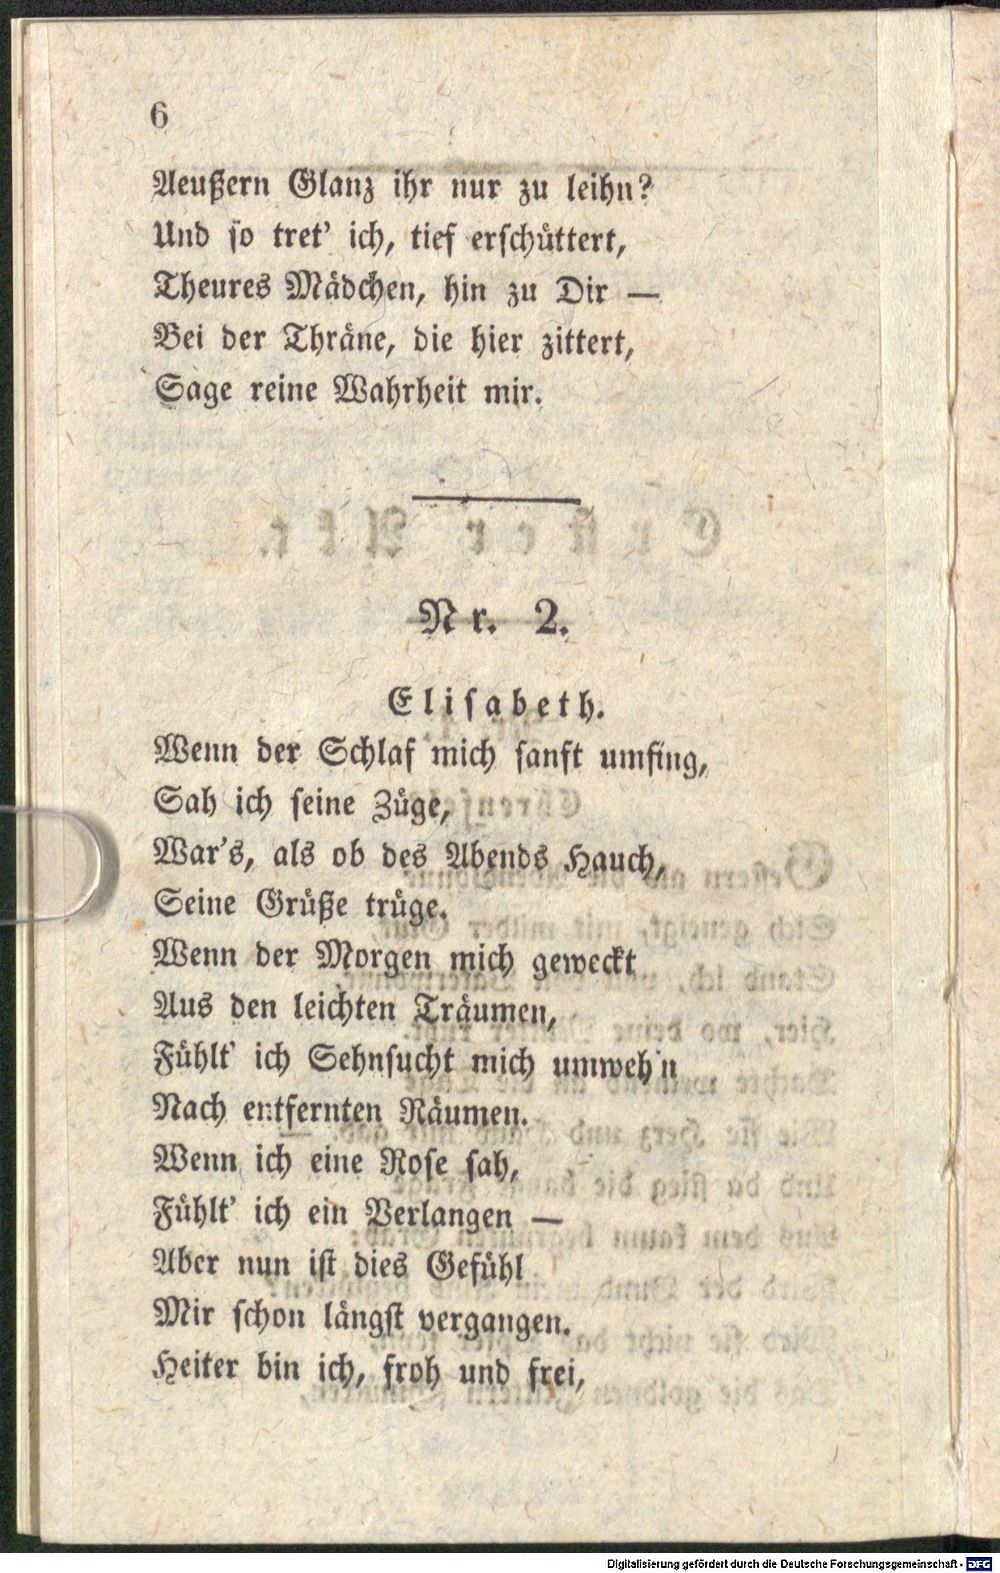 6
Aeußern Glanz ihr nur zu leihn?
Und so tret' ich, tief erschüttert,
Theures Mädchen, hin zu Dir —
Bei der Thräne, die hier zittert,
Sage reine Wahrheit mir.
Nr. 2.
Elisabeth.
Wenn der Schlaf mich sanft umfing,
Sah ich seine Züge,
War's, als ob des Abends Hauch,
Seine Grüße trüge.
Wenn der Morgen mich geweckt
Aus den leichten Träumen,
Fühlt' ich Sehnsucht mich umweh'n
Nach entfernten Räumen.
Wenn ich eine Rose sah,
Fühlt' ich ein Verlangen —
Aber nun ist dies Gefühl
Mir schon längst vergangen.
Heiter bin ich, froh und frei,
Digitalisierung gefördert durch die Deutsche Forschungsgemeinschaft - DFG